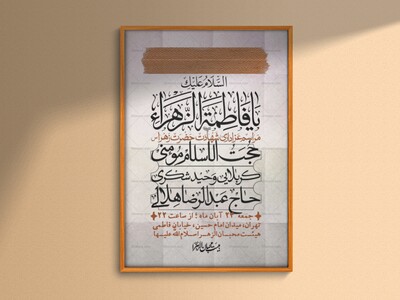 السَّلامُ عَلَیْکِ
یا فاطِمَةُ الزَّهراء
مراسم عزاداری شهادت حضرت زهرا س
حجت الاسلام مومنی
کربلایی وحید شکری
حاج عبدالرضا هلالی
جمعه ۲۴ آبان ماه / از ساعت ۲۲
تهران، میدان امام حسین، خیابان فاطمی
هیئت محبان الزهرا سلام الله علیها